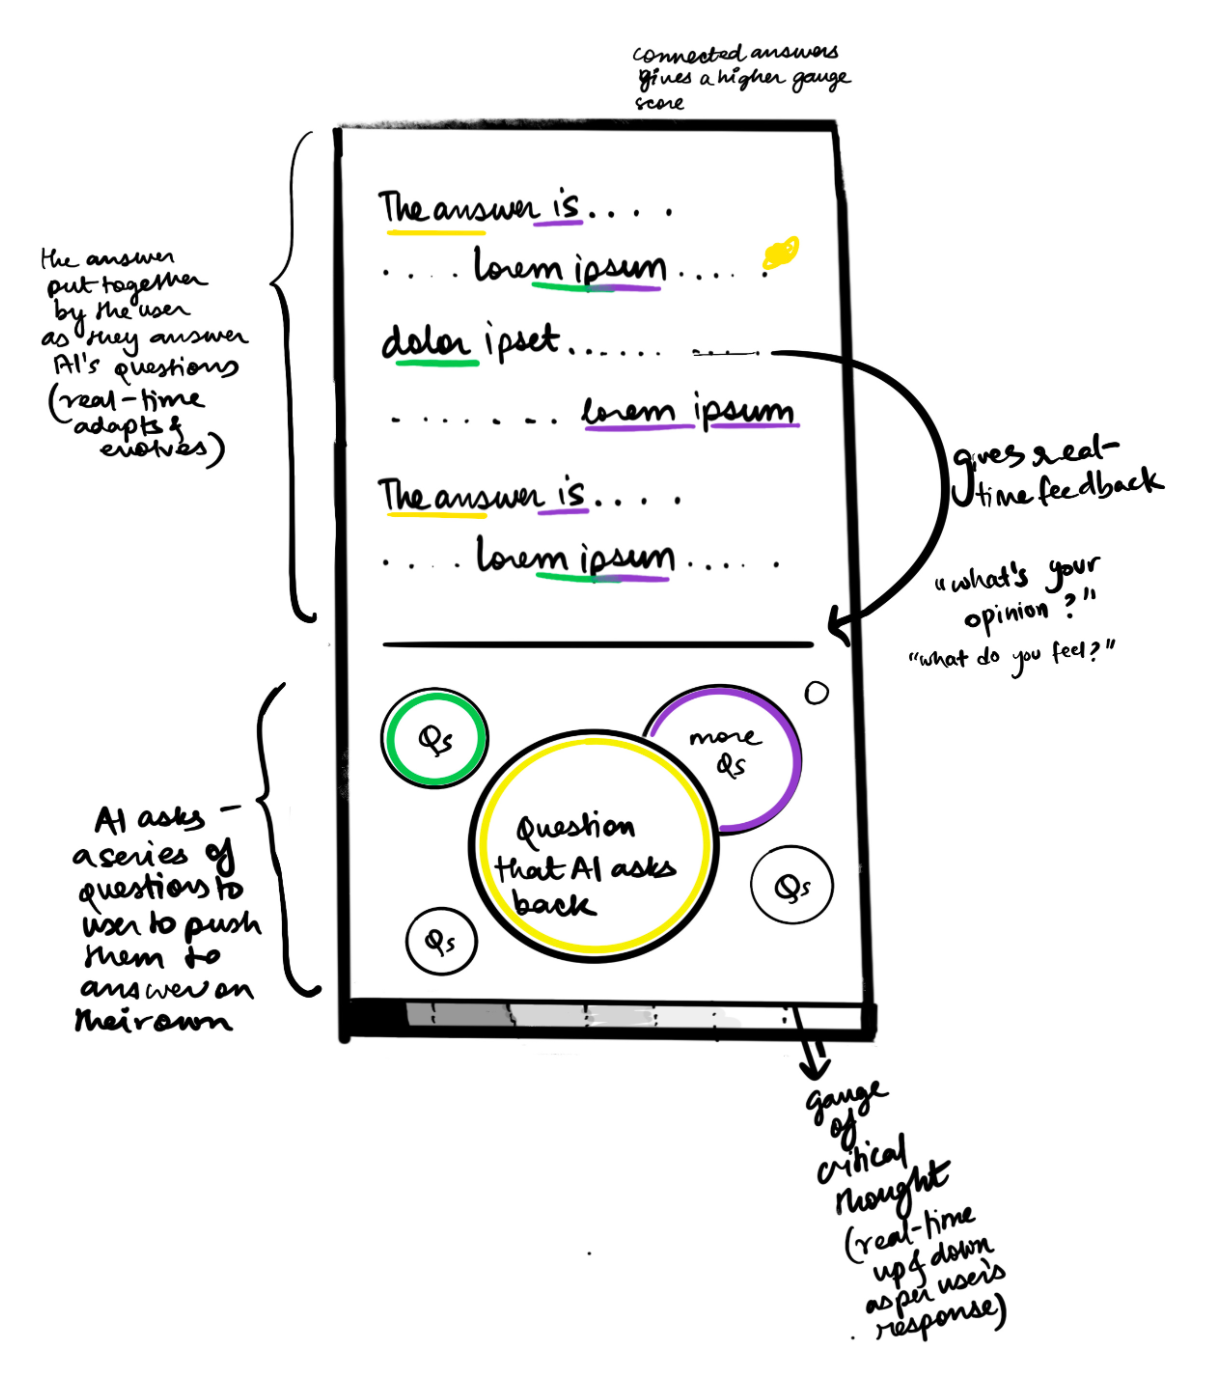 connected answers
gives a higher gauge
score
the answer
put together
by the user
as they answer
AI's questions
(real-time
adapts &
evolves)
The answer is....
.... lorem ipsum .....
dolor ipset...... .....
....... lorem ipsum
The answer is....
.... lorem ipsum .....
gives real-
time feedback
"what's your
opinion?"
"what do you feel?"
AI asks -
a series of
questions to
user to push
them to
answer on
their own
Qs
more
Qs
Question
that AI asks
back
Qs
Qs
gauge
of
critical
thought
(real-time
up & down
as per user's
response)